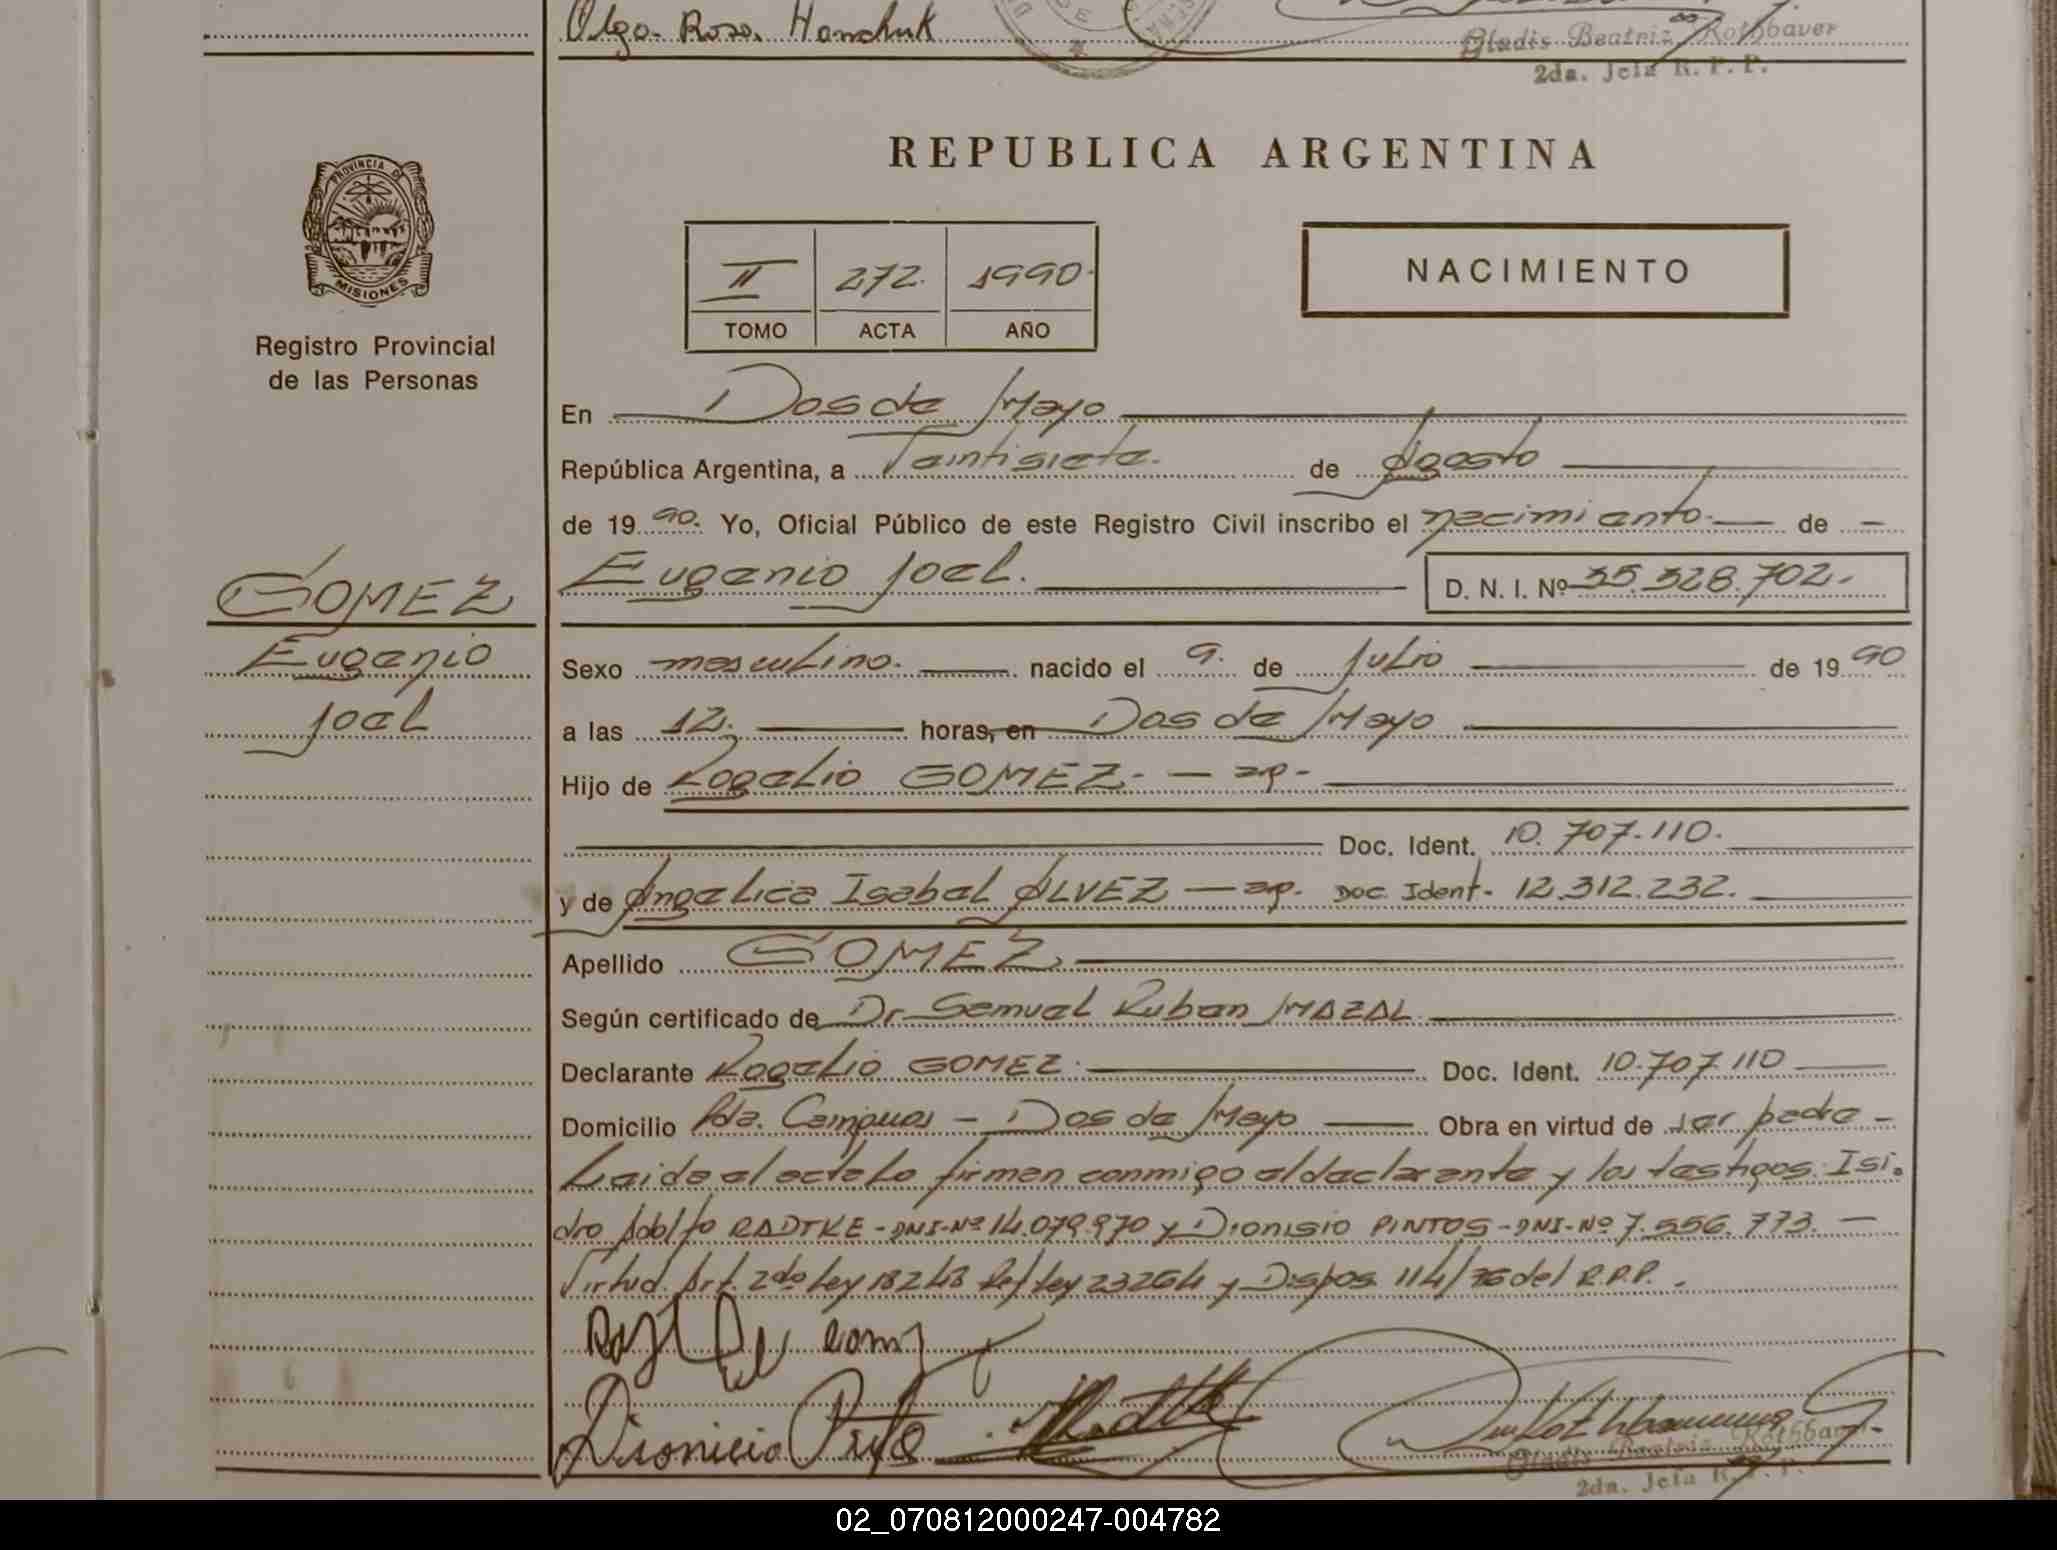 Olga Rosa Hanchuk
Gladis Beatriz Rothbaver
2da. Jefa R. P. P.
REPUBLICA ARGENTINA
PROVINCIA DE
MISIONES
Registro Provincial
de las Personas
II 272. 1990.
TOMO ACTA AÑO
NACIMIENTO
En Dos de Mayo
República Argentina, a Veintisiete. de Agosto
de 19 90. Yo, Oficial Público de este Registro Civil inscribo el nacimiento. de
Eugenio Joel. D. N. I. Nº 35.328.702.
GOMEZ
Eugenio
Joel
Sexo masculino. nacido el 9. de Julio de 19 90
a las 12. horas, en Dos de Mayo
Hijo de Rogelio GOMEZ. - ap-
Doc. Ident. 10.707.110.
y de Angelica Isabel ALVEZ - ap. Doc. Ident- 12.312.232.
Apellido GOMEZ
Según certificado de Dr Samuel Ruben MAZAL
Declarante Rogelio GOMEZ. Doc. Ident. 10.707.110
Domicilio Pda. Campuos - Dos de Mayo Obra en virtud de ser padre -
Leida el acta la firman conmigo el declarante y los testigos: Isi.
dro Adolfo RADTKE - DNI-Nº 14.079.970 y Dionisio PINTOS - DNI-Nº 7.556.773. -
Virtud. Art. 2do Ley 18248 Ref Ley 23264 y Dispos. 114/76 del R.P.P.
Dionicio
Gladis Beatriz Rothbaver
2da. Jefa R. P. P.
02_070812000247-004782